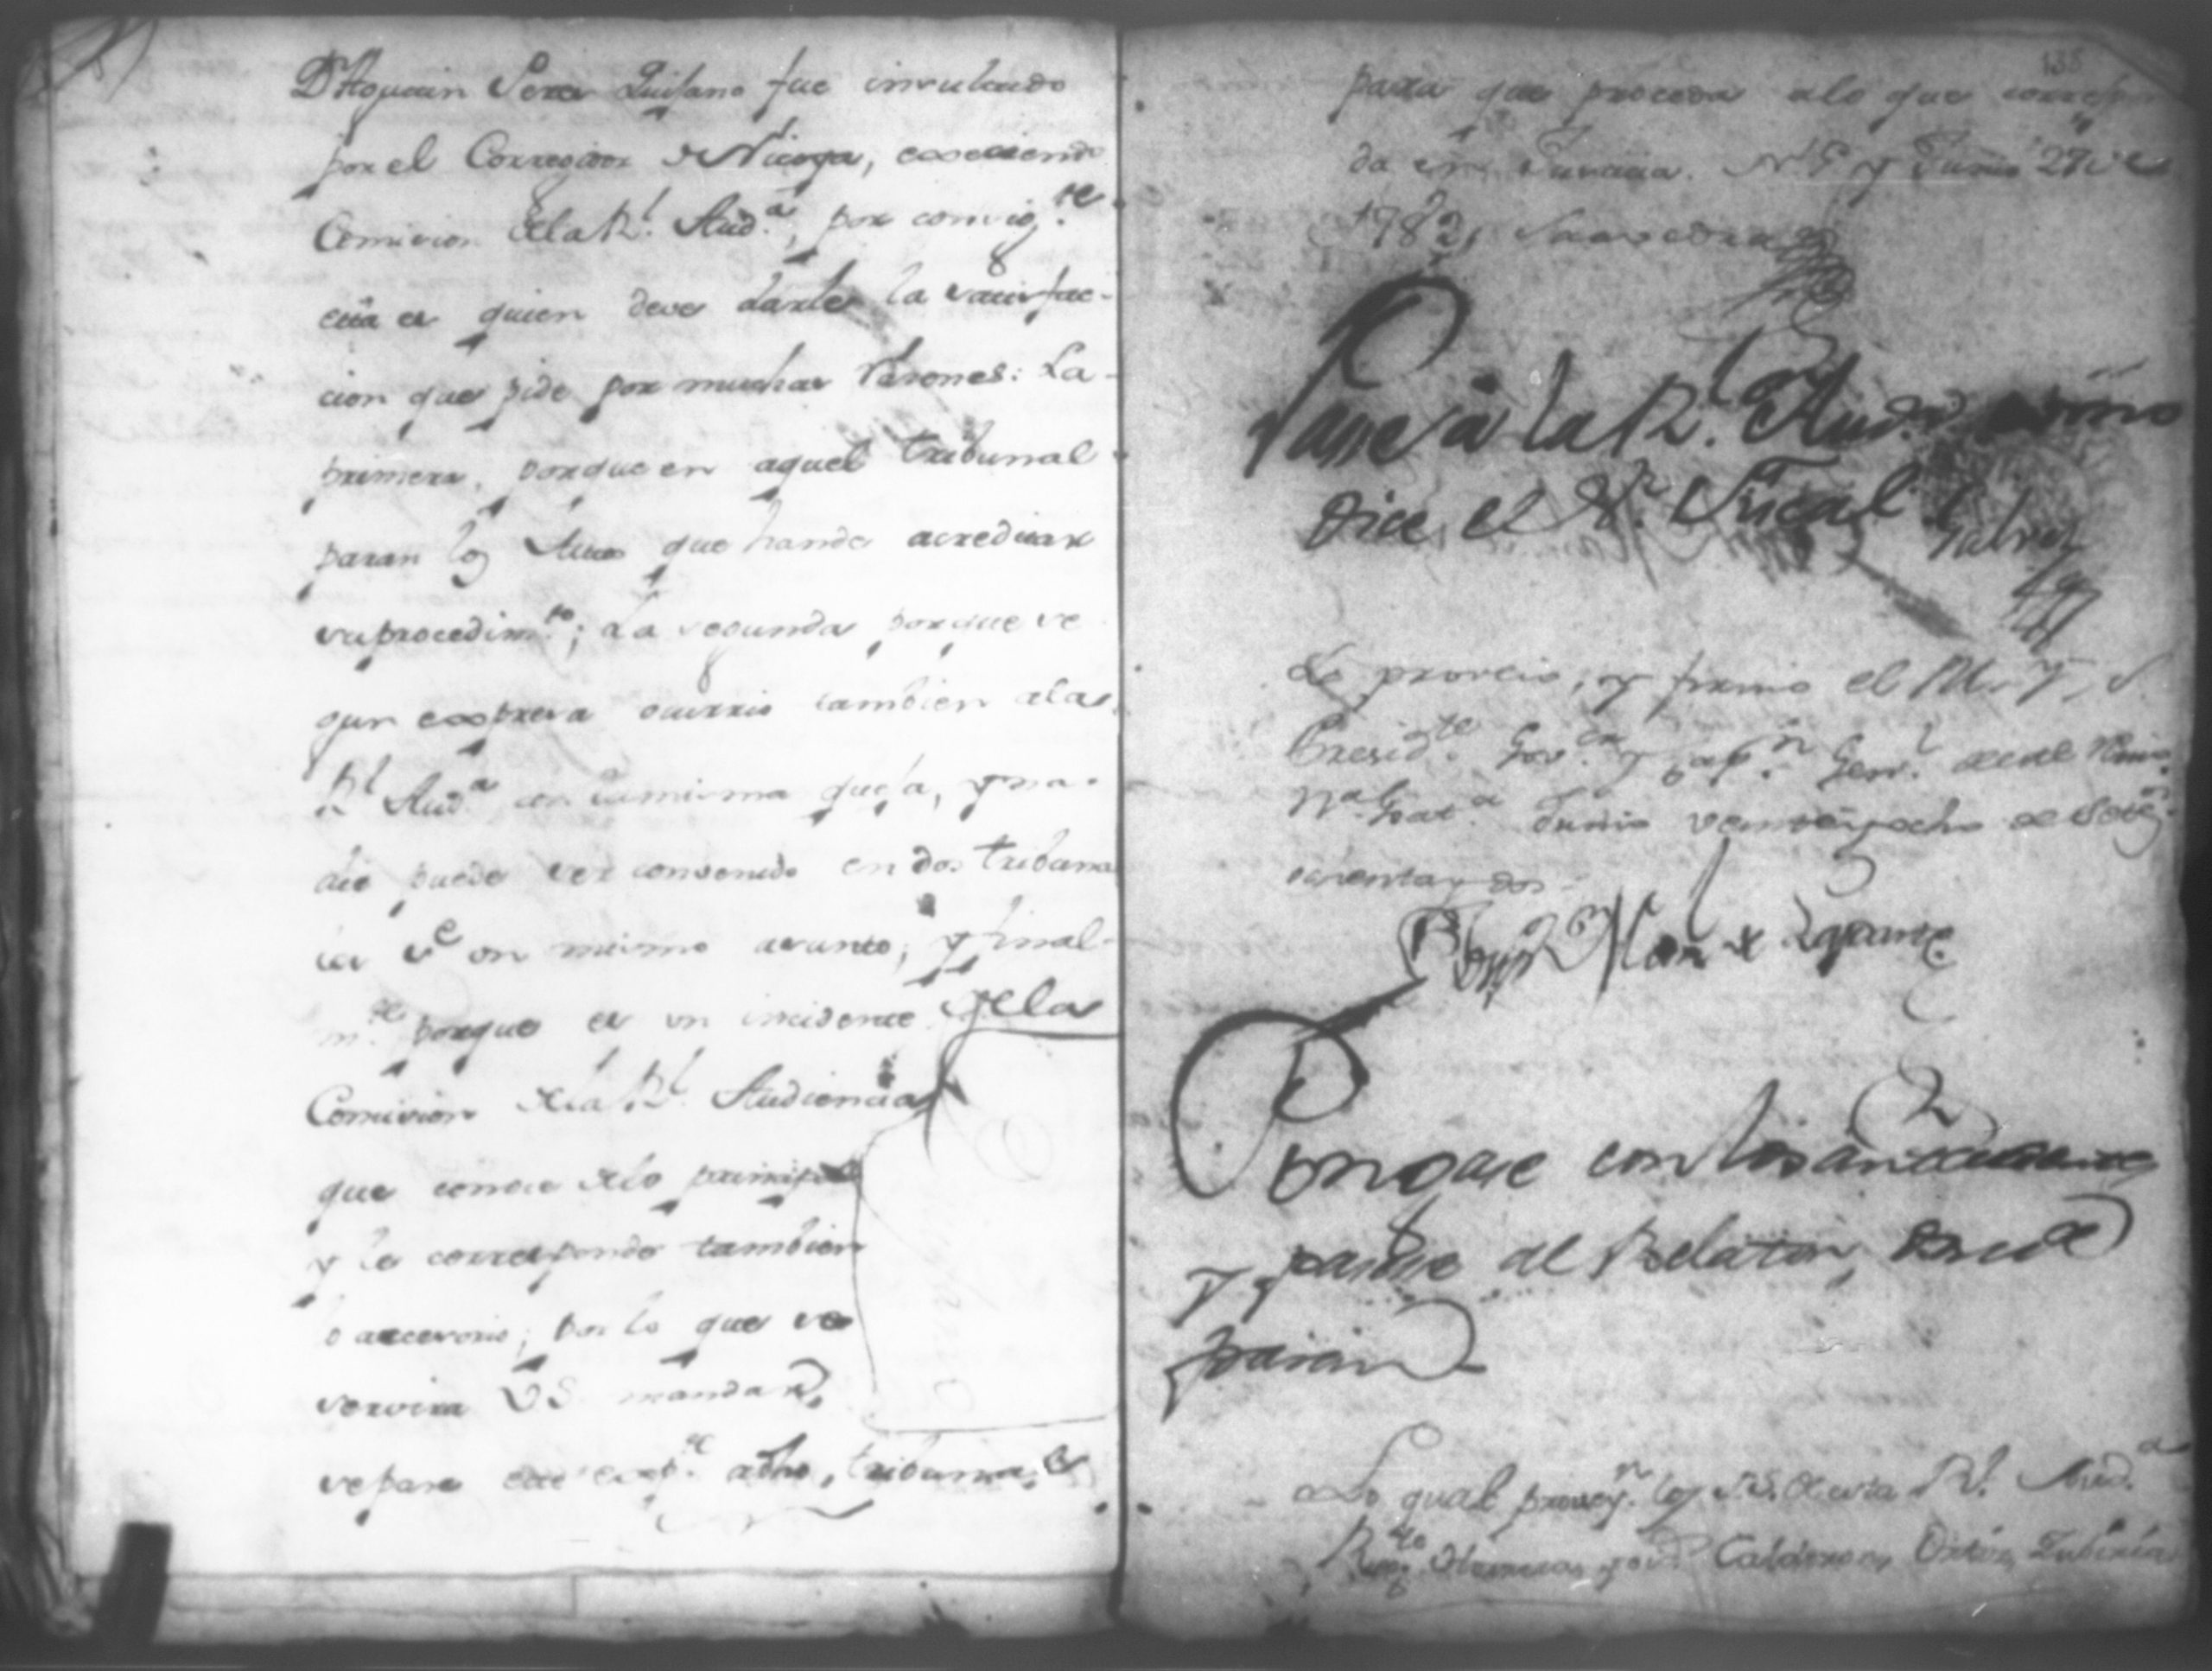 Dn Aquiun Perez Quisano fue insultado
por el Corregidor de Nicoya, exerciendo
Comision de la Rl. Auda, por consigte
esta es quien deve darle la satisfac-
cion que pide por muchas rasones: La
primera, porque en aquel tribunal
paran los Autos que han de acreditar
su procedimto; La segunda porque se
gun expresa ocurrio tambien a la
Rl Auda con la misma queja, y na-
die puede ser convenido en dos tribuna
les sre un mismo asunto; y final-
mte porque es un incidente de la
Comision de la Rl. Audiencia
que conoce de lo principal
y le corresponde tambien
lo accesorio; por lo que se
servira VS. mandar,
se pase este expte a dho, tribunal
138
para que proceda a lo que correspon
da en Justicia. N. G. y Junio 27 de
1782, Saavedra
Passe à la Rl. Auda como
dice el Sr. Fiscal
Galvez
Lo proveio, y firmo el M. Y. S.
Presidte Govor y Capn Genl. de este Reino
Na. Guata Junio veinte y ocho de Setes
ochenta y dos
Pongase con los antecedentes
y passe al Relator, donde
paran
Lo qual proveyn los SS. de esta Rl. Auda
Regte Calderon, Ortiz,